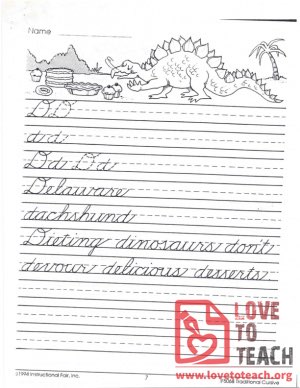 Name
D D
d d
Dd Dd
Delaware
dachshund
Dieting dinosaurs don't
devour delicious desserts.
LOVE
TO
TEACH
www.lovetoteach.org
©1998 Instructional Fair, Inc.
7
Traditional Cursive